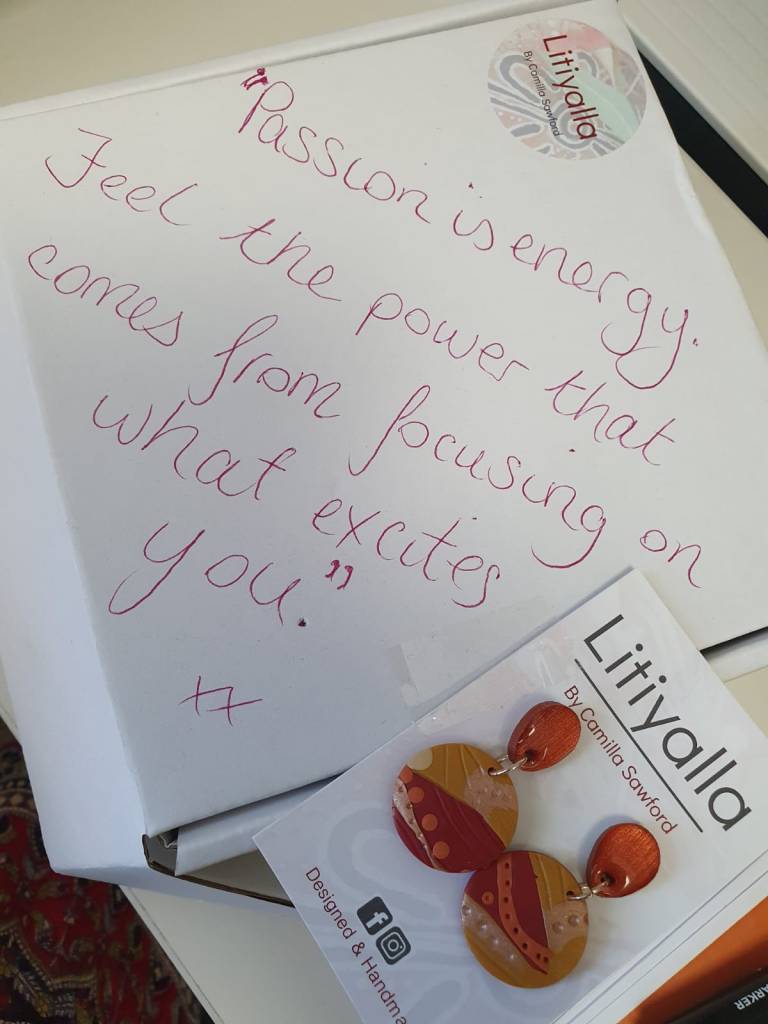 Litiyalla
By Camilla Sawford
"Passion is energy.
Feel the power that
comes from focusing on
what excites
you."
xx
Litiyalla
By Camilla Sawford
Designed & Handma
ARKER